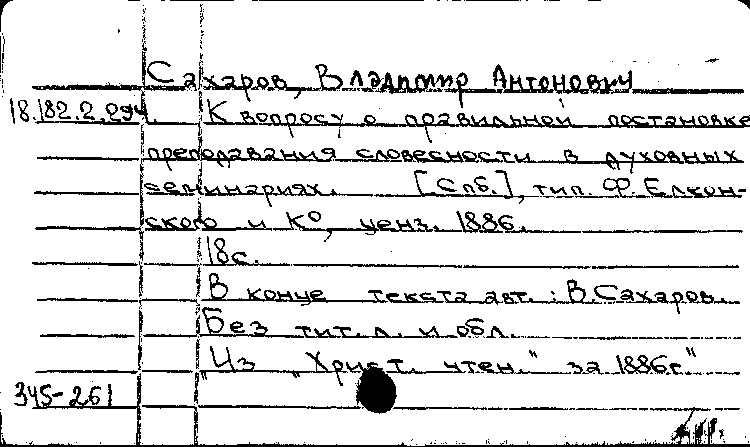 Сахаров, Владимир Антонович
18.182.2.294. К вопросу о правильной постановке
преподавания словесности в духовных
семинариях. [Спб.], тип. Ф. Елеон-
ского и К°, ценз. 1886.
18с.
В конце текста авт.: В.Сахаров.
Без тит. л. и обл.
"Из "Христ. чтен." за 1886г."
345-261